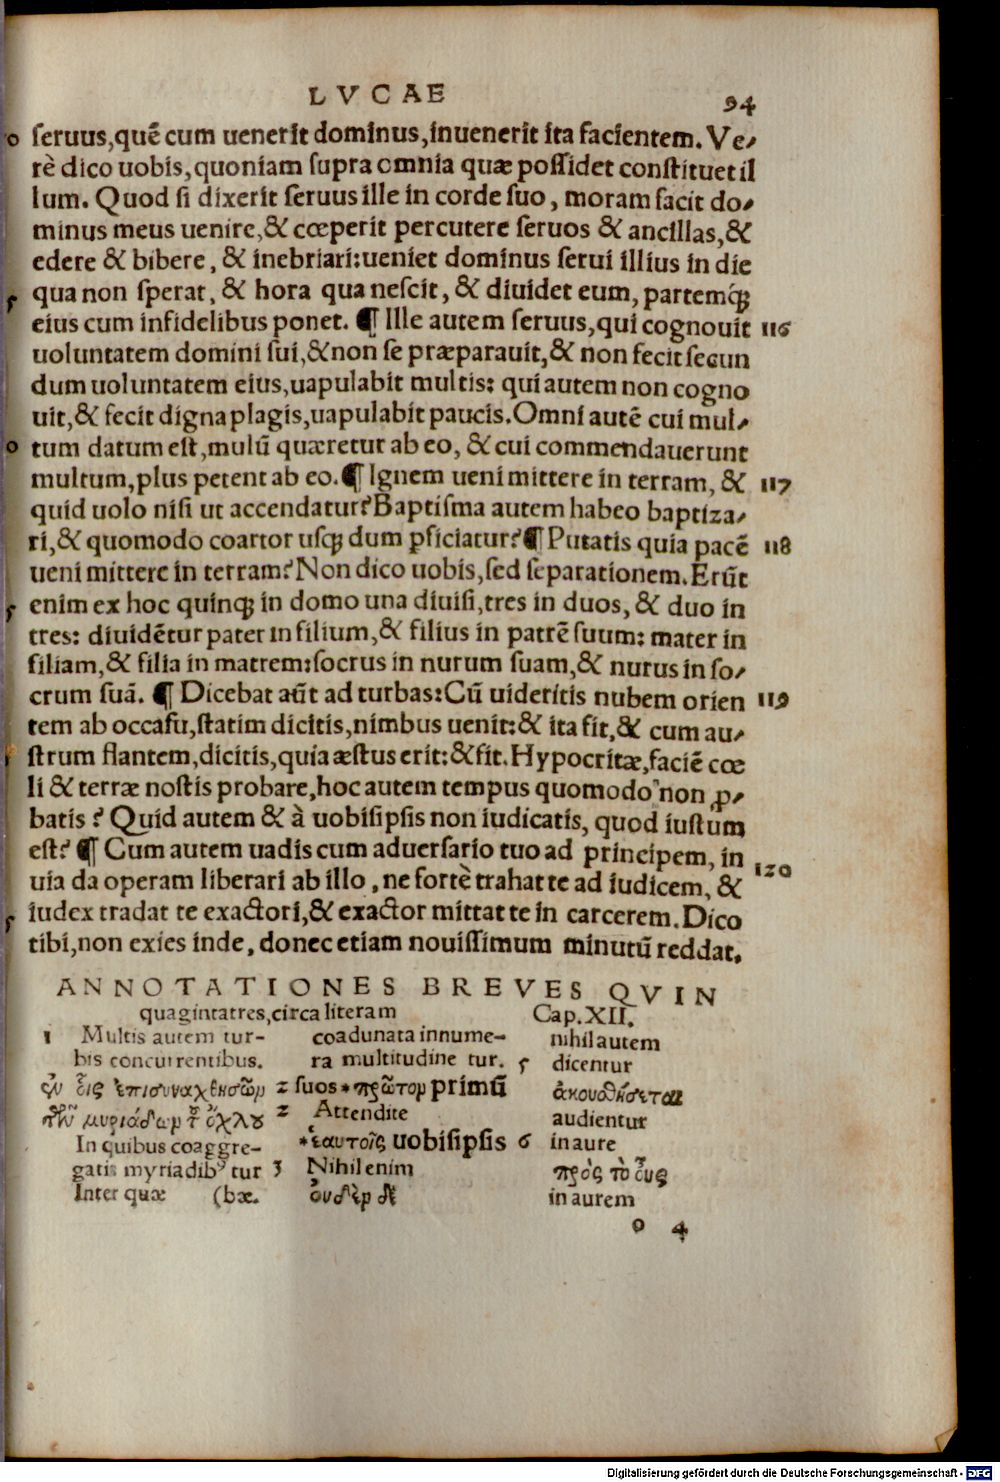 LVCAE 94
o ſeruus,quē cum uenerit dominus,inuenerit ita facientem. Ve/
rè dico uobis,quoniam ſupra omnia quæ poſſidet conſtituet il
lum. Quod ſi dixerit ſeruus ille in corde ſuo, moram facit do/
minus meus uenire,& cœperit percutere ſeruos & ancillas,&
edere & bibere, & inebriari:ueniet dominus ſerui illius in die
ſ qua non ſperat, & hora qua neſcit, & diuidet eum, partemq́ꝫ
eius cum infidelibus ponet. ¶ Ille autem ſeruus,qui cognouit 116
uoluntatem domini ſui,&non ſe præparauit,& non fecit ſecun
dum uoluntatem eius,uapulabit multis: qui autem non cogno
uit,& fecit digna plagis,uapulabit paucis.Omni autē cui mul/
o tum datum eſt,multū quæretur ab eo, & cui commendauerunt
multum,plus petent ab eo.¶ Ignem ueni mittere in terram, & 117
quid uolo niſi ut accendatur?Baptiſma autem habeo baptiza/
ri,& quomodo coartor uſqꝫ dum ꝑficiatur?¶ Putatis quia pacē 118
ueni mittere in terram?Non dico uobis,ſed ſeparationem.Erūt
ſ enim ex hoc quinqꝫ in domo una diuiſi,tres in duos, & duo in
tres: diuidētur pater in filium,& filius in patrē ſuum: mater in
filiam,& filia in matrem:ſocrus in nurum ſuam,& nurus in ſo/
crum ſuā. ¶ Dicebat aūt ad turbas:Cū uideritis nubem orien 119
tem ab occaſu,ſtatim dicitis,nimbus uenit:& ita fit,& cum au/
ſtrum flantem,dicitis,quia æſtus erit:&fit.Hypocritæ,faciē cœ
li & terræ noſtis probare,hoc autem tempus quomodo non ꝓ/
batis ? Quid autem & à uobiſipſis non iudicatis, quod iuſtum
eſt? ¶ Cum autem uadis cum aduerſario tuo ad principem, in
uia da operam liberari ab illo, ne fortè trahat te ad iudicem, & 120
ſ iudex tradat te exactori,& exactor mittat te in carcerem.Dico
tibi,non exies inde, donec etiam nouiſſimum minutū reddat.
ANNOTATIONES BREVES QVIN
quagintatres,circa literam Cap.XII.
1 Multis autem tur-
bis concurrentibus.
ἐν οἷς ἐπισυναχθεισῶν
τῶν μυριάδων τ ὄχλου
In quibus coaggre-
gatis myriadibꝰ tur
Inter quæ (bæ.
coadunata innume-
ra multitudine tur.
2 ſuos *πρῶτον primū
2 Attendite
*ἑαυτοῖς uobiſipſis
3 Nihil enim
οὐδὲν δὲ
nihil autem
5 dicentur
ἀκουσθήσεται
audientur
6 in aure
πρὸς τὸ οὖς
in aurem
o 4
Digitalisierung gefördert durch die Deutsche Forschungsgemeinschaft - DFG